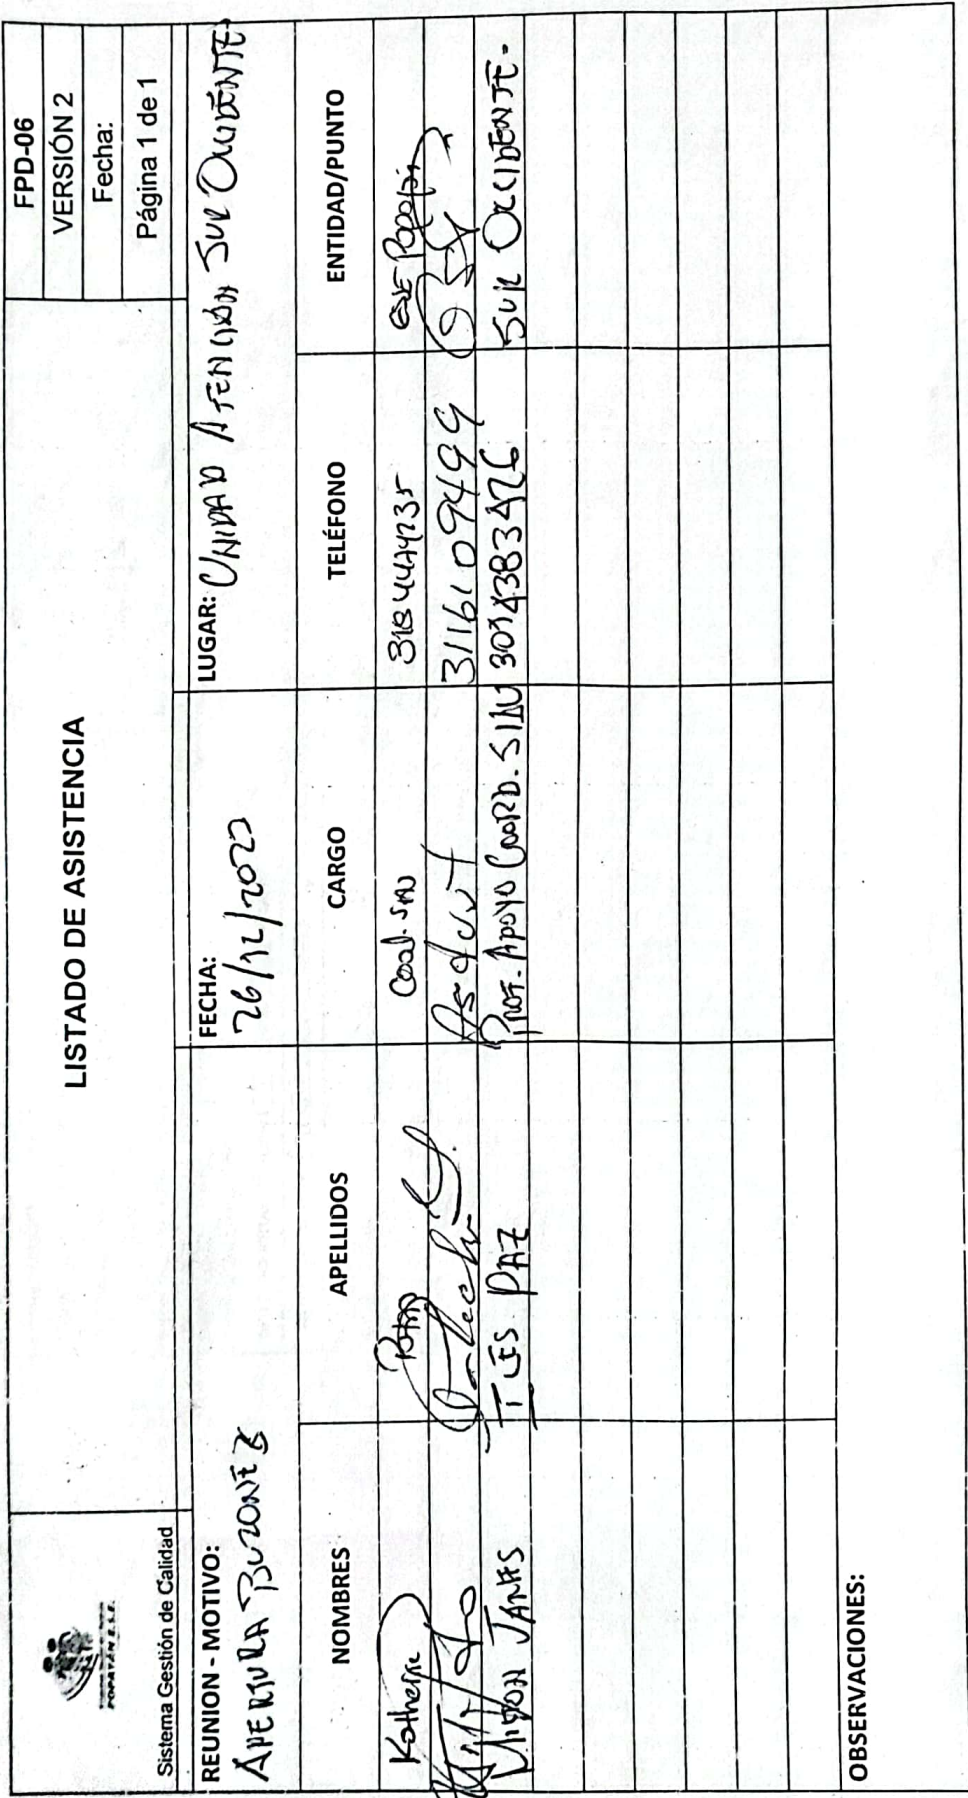 POPAYÁN E.S.E.
Sistema Gestión de Calidad
LISTADO DE ASISTENCIA
FPD-06
VERSIÓN 2
Fecha:
Página 1 de 1
REUNION - MOTIVO:
APERTURA BUZONES
FECHA:
26/12/2022
LUGAR: UNIDAD ATENCIÓN SUR OCCIDENTE
NOMBRES APELLIDOS CARGO TELÉFONO ENTIDAD/PUNTO
Katherine Coord. SIAU 3184474235 ESE Popayán
3116109499
ILES PAZ Prof. Apoyo Coord. SIAU 3014383426 SUR OCCIDENTE.
OBSERVACIONES: